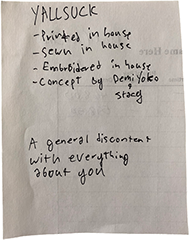 YALLSUCK
- Printed in house
- Sewn in house
- Embroidered in house
- Concept by Demi Yoko
& stacy
A general discontent
with everything
about you